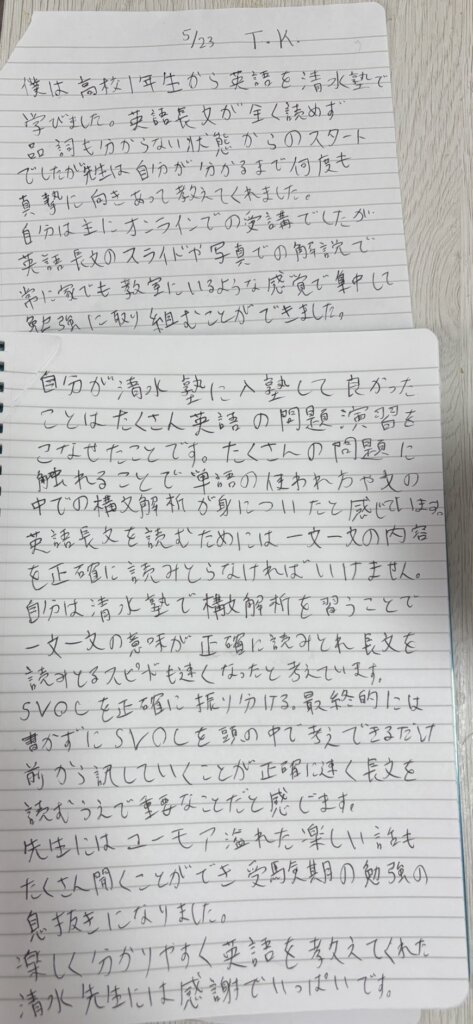 5/23 T.K.
僕は高校1年生から英語を清水塾で
学びました。英語長文が全く読めず
品詞も分からない状態からのスタート
でしたが先生は自分が分かるまで何度も
真摯に向きあって教えてくれました。
自分は主にオンラインでの受講でしたが
英語長文のスライドや写真での解説で
常に家でも教室にいるような感覚で集中して
勉強に取り組むことができました。
自分が清水塾に入塾して良かった
ことはたくさん英語の問題演習を
こなせたことです。たくさんの問題に
触れることで単語の使われ方や文の
中での構文解析が身についたと感じています。
英語長文を読むためには一文一文の内容
を正確に読みとらなければいけません。
自分は清水塾で構文解析を習うことで
一文一文の意味が正確に読みとれ長文を
読みとるスピードも速くなったと考えています。
SVOCを正確に振り分ける。最終的には
書かずにSVOCを頭の中で考えできるだけ
前から訳していくことが正確に速く長文を
読むうえで重要なことだと感じます。
先生にはユーモア溢れた楽しい話も
たくさん聞くことができ受験期の勉強の
息抜きになりました。
楽しく分かりやすく英語を教えてくれた
清水先生には感謝でいっぱいです。